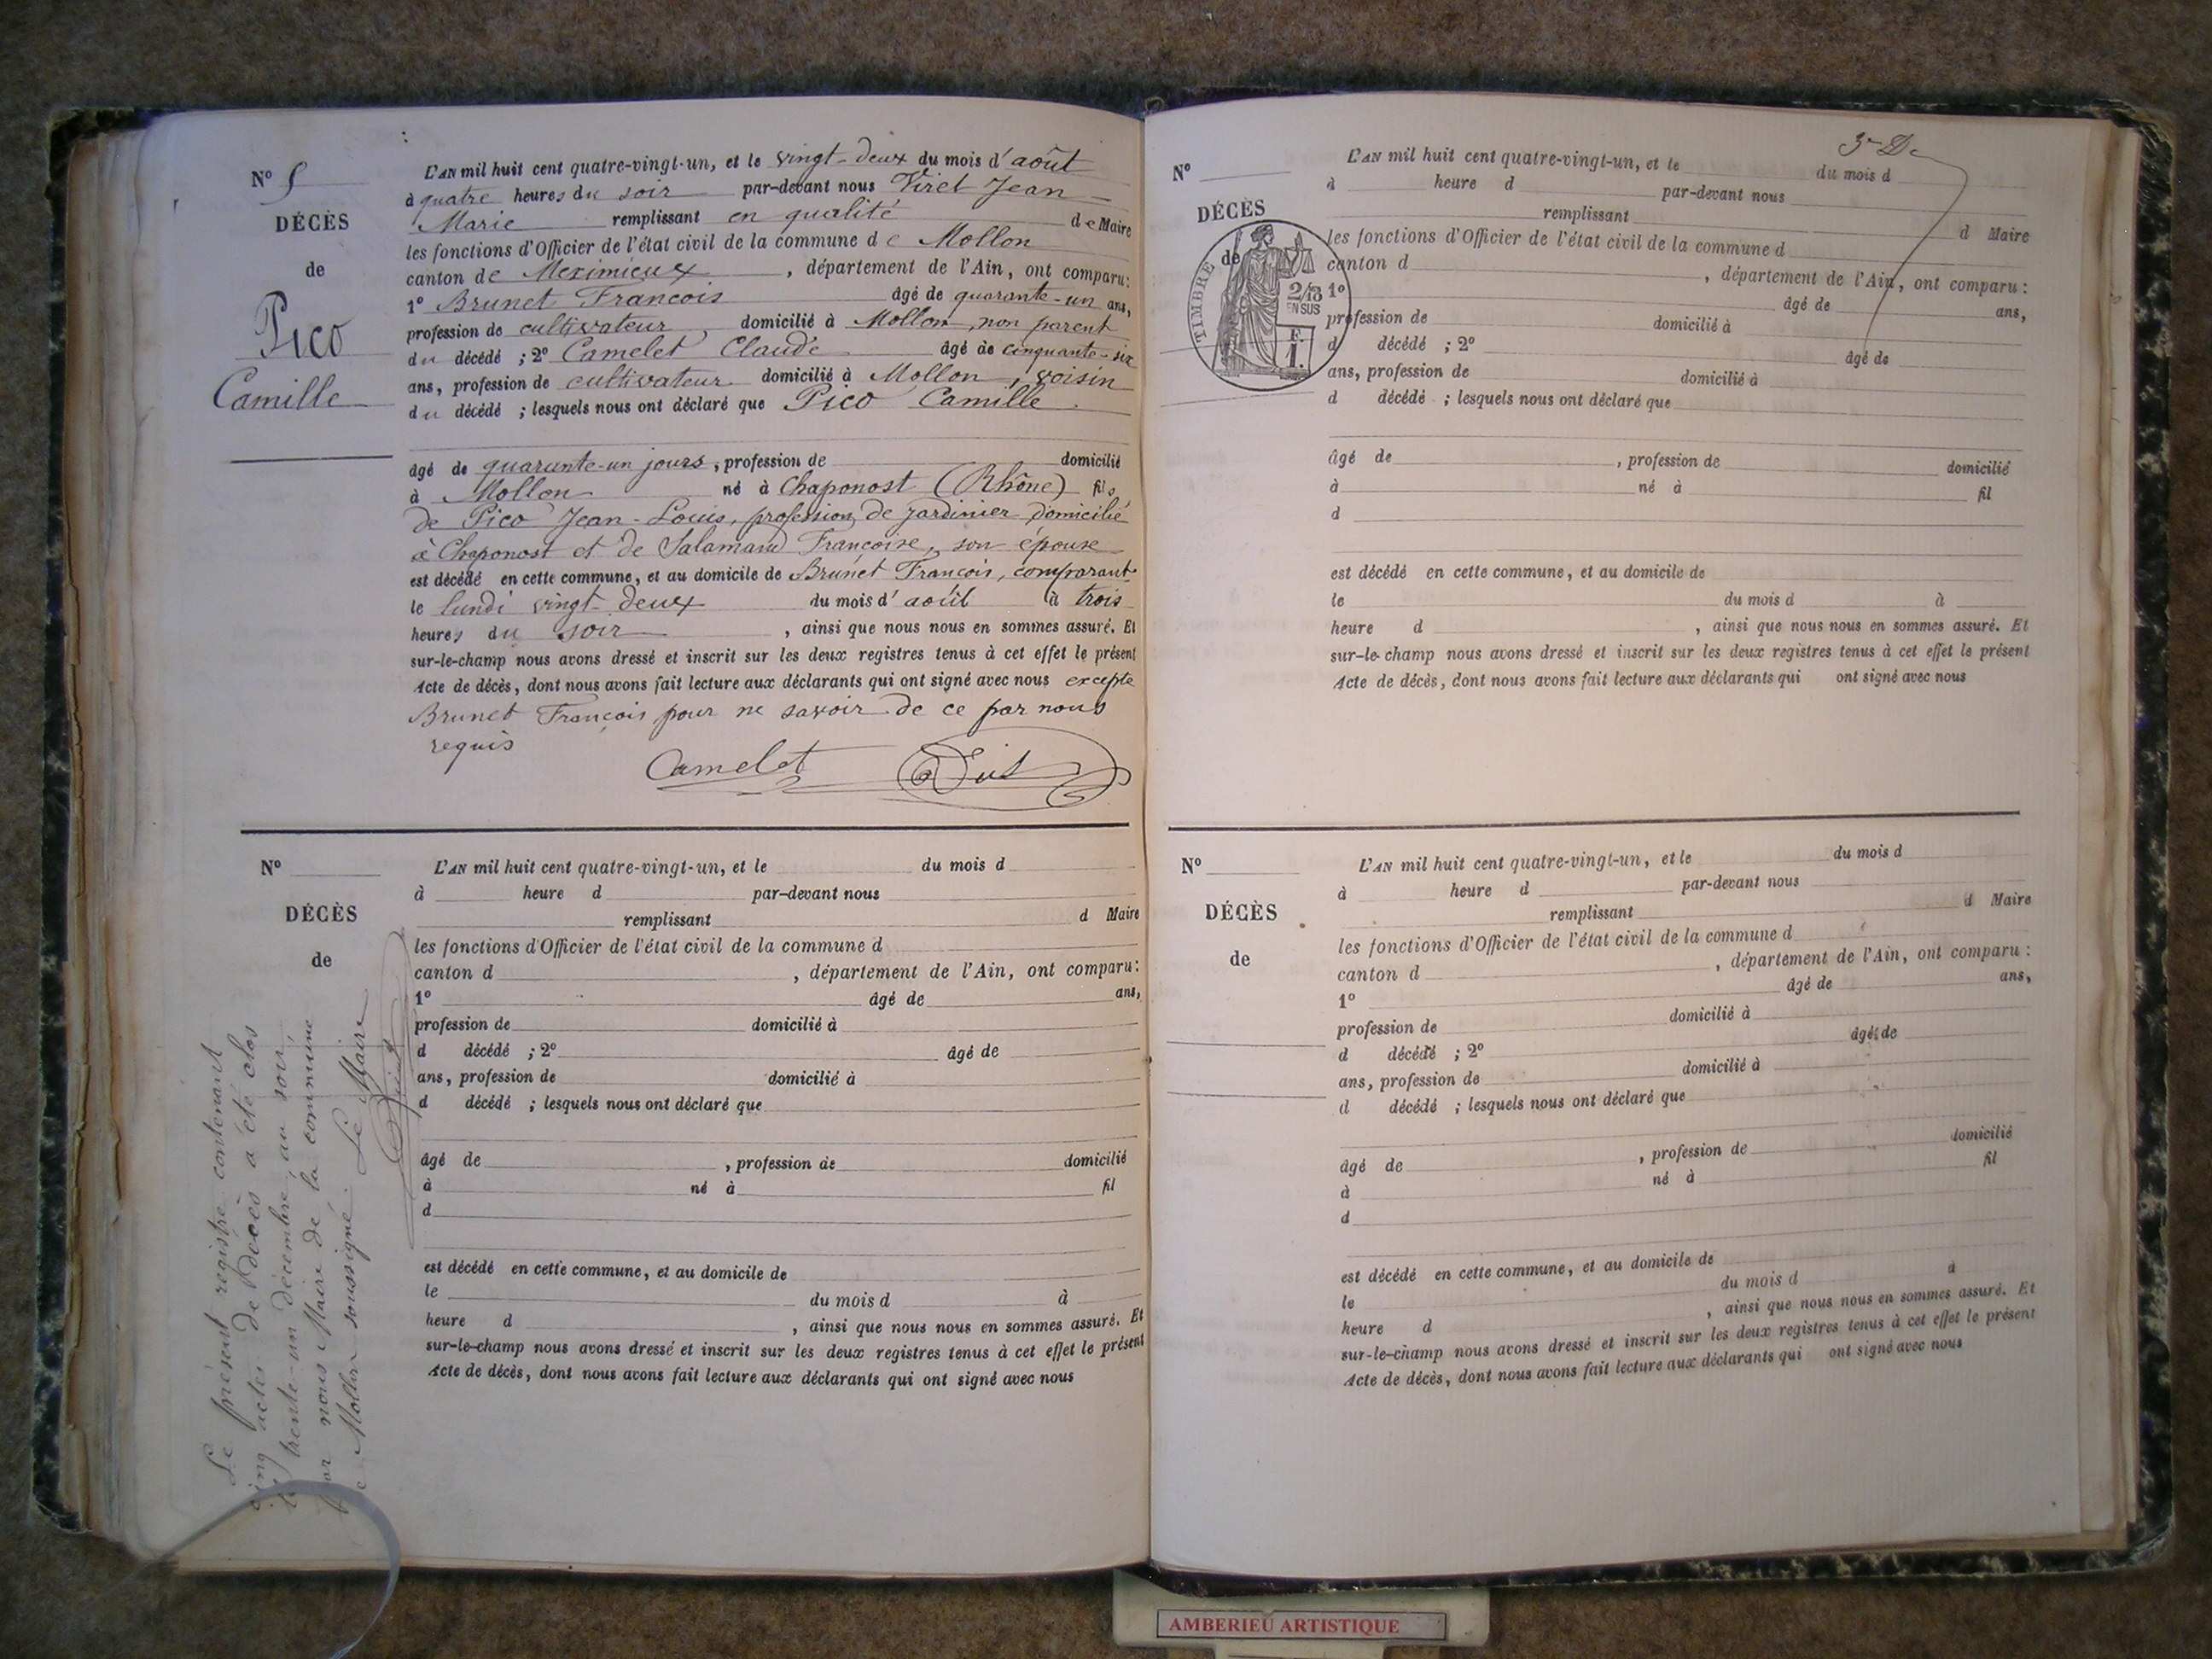 N° 5
DÉCÈS
de
Pico
Camille
L'AN mil huit cent quatre-vingt-un, et le vingt-deux du mois d'août
à quatre heures du soir par-devant nous Viret Jean
Marie remplissant en qualité de Maire
les fonctions d'Officier de l'état civil de la commune de Mollon
canton de Meximieux, département de l'Ain, ont comparu:
1° Brunet Francois âgé de quarante-un ans,
profession de cultivateur, domicilié à Mollon, non parent
du décédé ; 2° Camelet Claude âgé de cinquante-six
ans, profession de cultivateur domicilié à Mollon, voisin
du décédé ; lesquels nous ont déclaré que Pico Camille
âgé de quarante-un jours, profession de domicilié
à Mollon né à Chaponost (Rhône) fils
de Pico Jean-Louis, profession de jardinier domicilié
à Chaponost et de Salamand Françoise, son épouse
est décédé en cette commune, et au domicile de Brunet François, comparant
le lundi vingt-deux du mois d'août à trois
heures du soir, ainsi que nous nous en sommes assuré. Et
sur-le-champ nous avons dressé et inscrit sur les deux registres tenus à cet effet le présent
Acte de décès, dont nous avons fait lecture aux déclarants qui ont signé avec nous excepté
Brunet François pour ne savoir de ce par nous
requis
Camelet
N°
DÉCÈS
de
L'AN mil huit cent quatre-vingt-un, et le du mois d
à heure d par-devant nous
remplissant d Maire
les fonctions d'Officier de l'état civil de la commune d
canton d , département de l'Ain, ont comparu:
1° âgé de ans,
profession de domicilié à
d décédé ; 2° âgé de
ans, profession de domicilié à
d décédé ; lesquels nous ont déclaré que
âgé de , profession de domicilié
à né à fil
d
est décédé en cette commune, et au domicile de
le du mois d à
heure d , ainsi que nous nous en sommes assuré. Et
sur-le-champ nous avons dressé et inscrit sur les deux registres tenus à cet effet le présent
Acte de décès, dont nous avons fait lecture aux déclarants qui ont signé avec nous
Le présent registre contenant
cinq actes de décès a été clos
le trente-un décembre au soir,
par nous Maire de la commune
de Mollon soussigné. Le Maire
3e De
N°
DÉCÈS
de
TIMBRE
2/10
EN SUS
F.
1.
L'AN mil huit cent quatre-vingt-un, et le du mois d
à heure d par-devant nous
remplissant d Maire
les fonctions d'Officier de l'état civil de la commune d
canton d , département de l'Ain, ont comparu :
1° âgé de ans,
profession de domicilié à
d décédé ; 2° âgé de
ans, profession de domicilié à
d décédé ; lesquels nous ont déclaré que
âgé de , profession de domicilié
à né à fil
d
est décédé en cette commune, et au domicile de
le du mois d à
heure d , ainsi que nous nous en sommes assuré. Et
sur-le-champ nous avons dressé et inscrit sur les deux registres tenus à cet effet le présent
Acte de décès, dont nous avons fait lecture aux déclarants qui ont signé avec nous
N°
DÉCÈS
de
L'AN mil huit cent quatre-vingt-un, et le du mois d
à heure d par-devant nous
remplissant d Maire
les fonctions d'Officier de l'état civil de la commune d
canton d , département de l'Ain, ont comparu :
1° âgé de ans,
profession de domicilié à
d décédé ; 2° âgé de
ans, profession de domicilié à
d décédé ; lesquels nous ont déclaré que
âgé de , profession de domicilié
à né à fil
d
est décédé en cette commune, et au domicile de
le du mois d à
heure d , ainsi que nous nous en sommes assuré. Et
sur-le-champ nous avons dressé et inscrit sur les deux registres tenus à cet effet le présent
Acte de décès, dont nous avons fait lecture aux déclarants qui ont signé avec nous
AMBERIEU ARTISTIQUE